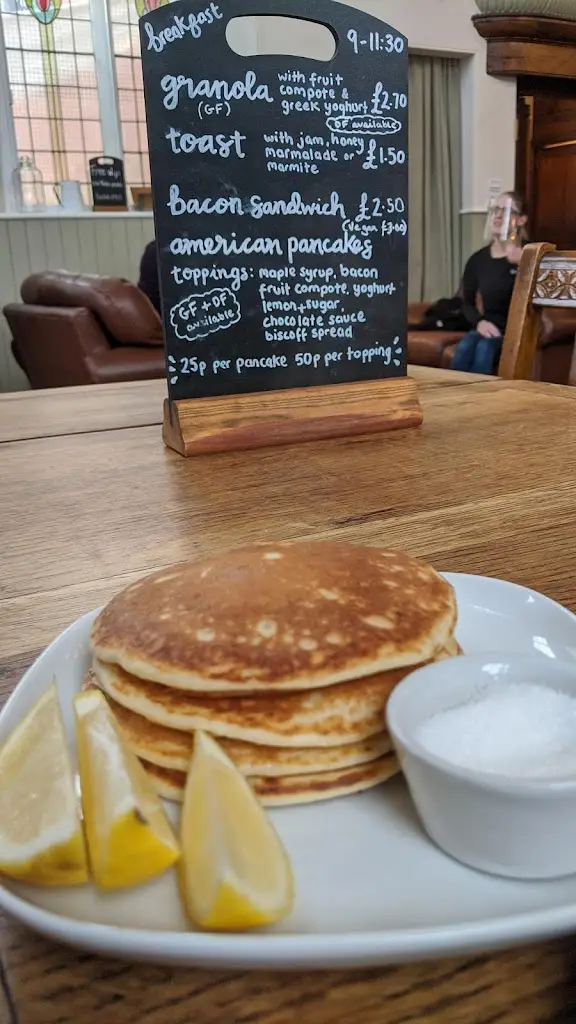 breakfast 9-11:30
granola with fruit
(GF) compote &
greek yoghurt £2.70
DF available
toast with jam, honey
marmalade or £1.50
marmite
bacon sandwich £2.50
(vegan £3.00)
american pancakes
toppings: maple syrup, bacon
fruit compote, yoghurt
GF + DF lemon + sugar,
available chocolate sauce
biscoff spread
25p per pancake 50p per topping